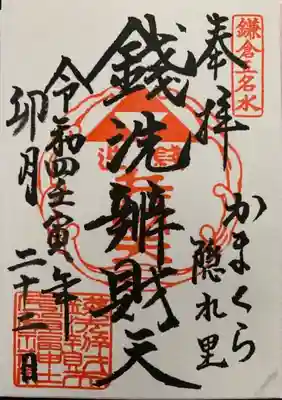 鎌倉五名水
奉拝
かまくら
隠れ里
銭洗辨財天
令和四壬寅年
卯月
二十二日